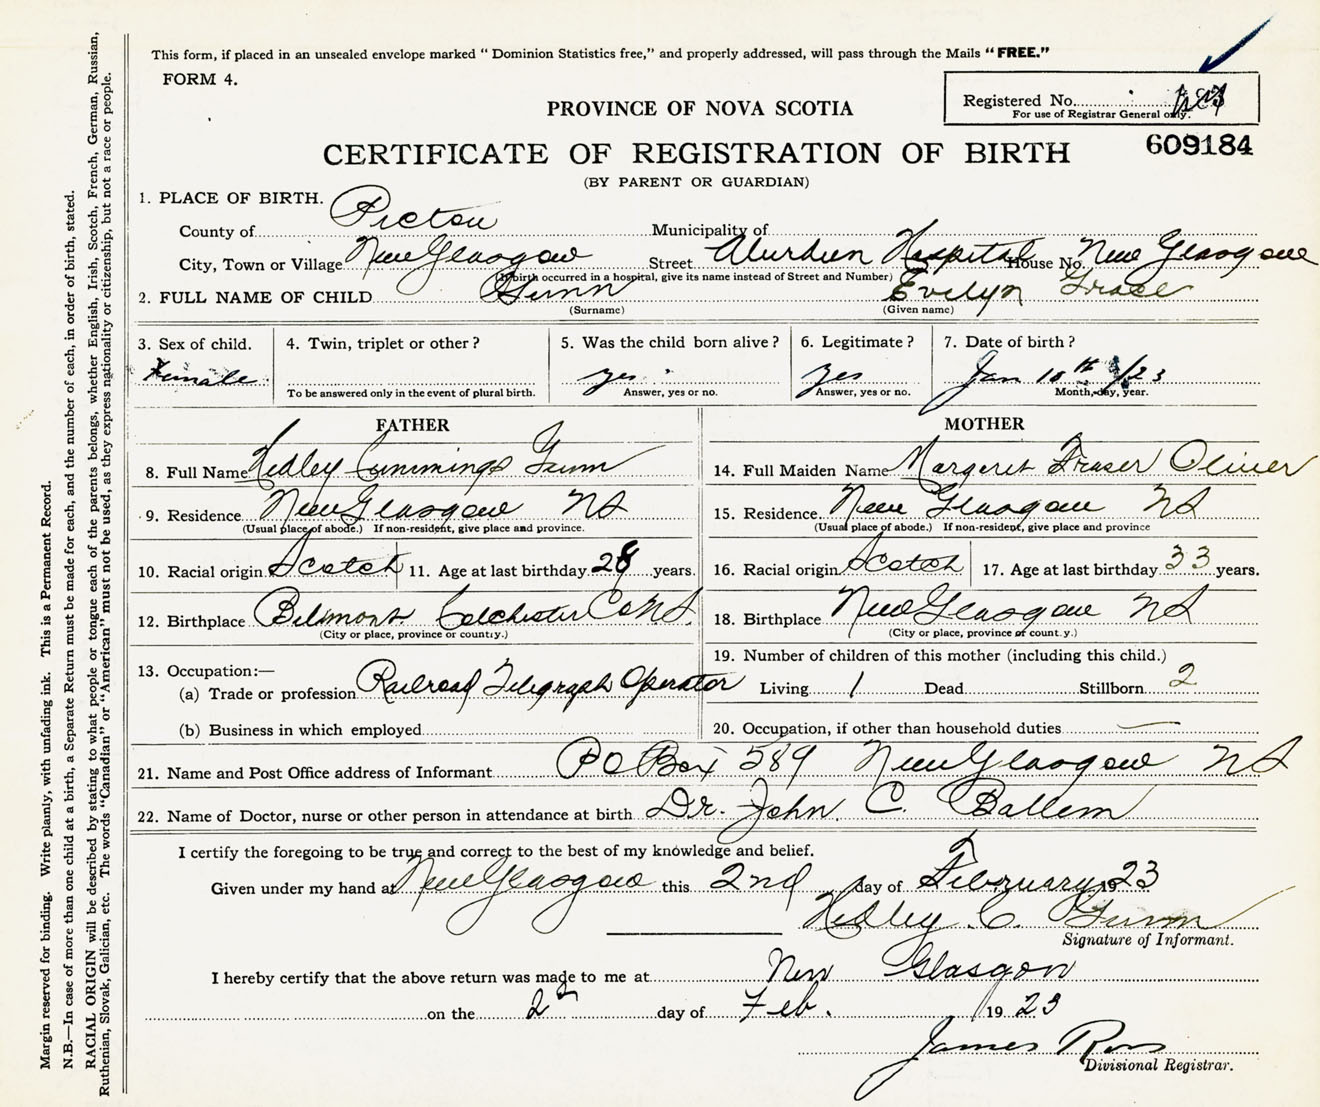 This form, if placed in an unsealed envelope marked “ Dominion Statistics free,” and properly addressed, will pass through the Mails “ FREE.”
FORM 4.
Registered No.
For use of Registrar General only.
609184
PROVINCE OF NOVA SCOTIA
CERTIFICATE OF REGISTRATION OF BIRTH
(BY PARENT OR GUARDIAN)
1. PLACE OF BIRTH.
County of Pictou Municipality of
City, Town or Village New Glasgow Street Aberdeen Hospital House No. New Glasgow
(If birth occurred in a hospital, give its name instead of Street and Number)
2. FULL NAME OF CHILD Gunn Evelyn Grace
(Surname) (Given name)
3. Sex of child. 4. Twin, triplet or other? 5. Was the child born alive? 6. Legitimate? 7. Date of birth?
Female yes yes Jan 10th /23
To be answered only in the event of plural birth. Answer, yes or no. Answer, yes or no. Month, day, year.
FATHER
8. Full Name Hedley Cummings Gunn
9. Residence New Glasgow NS
(Usual place of abode.) If non-resident, give place and province.
10. Racial origin Scotch 11. Age at last birthday 28 years.
12. Birthplace Belmont Colchester Co NS.
(City or place, province or country.)
13. Occupation:—
(a) Trade or profession Railroad Telegraph Operator
(b) Business in which employed
MOTHER
14. Full Maiden Name Margaret Fraser Oliver
15. Residence New Glasgow NS
(Usual place of abode.) If non-resident, give place and province
16. Racial origin Scotch 17. Age at last birthday 33 years.
18. Birthplace New Glasgow NS
(City or place, province or country.)
19. Number of children of this mother (including this child.)
Living 1 Dead Stillborn 2
20. Occupation, if other than household duties
21. Name and Post Office address of Informant PO Box 589 New Glasgow NS
22. Name of Doctor, nurse or other person in attendance at birth Dr. John C. Ballem
I certify the foregoing to be true and correct to the best of my knowledge and belief.
Given under my hand at New Glasgow this 2nd day of February 1923
Hedley C. Gunn
Signature of Informant.
I hereby certify that the above return was made to me at New Glasgow
on the 2d day of Feb. 1923
James Ross
Divisional Registrar.
Margin reserved for binding. Write plainly, with unfading ink. This is a Permanent Record.
N.B.—In case of more than one child at a birth, a Separate Return must be made for each, and the number of each, in order of birth, stated.
RACIAL ORIGIN will be described by stating to what people or tongue each of the parents belongs, whether English, Irish, Scotch, French, German, Russian,
Ruthenian, Slovak, Galician, etc. The words “Canadian” or “American” must not be used, as they express nationality or citizenship, but not a race or people.